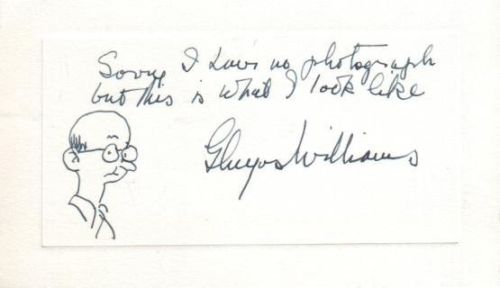 Sorry I have no photograph
but this is what I look like
Gluyas Williams